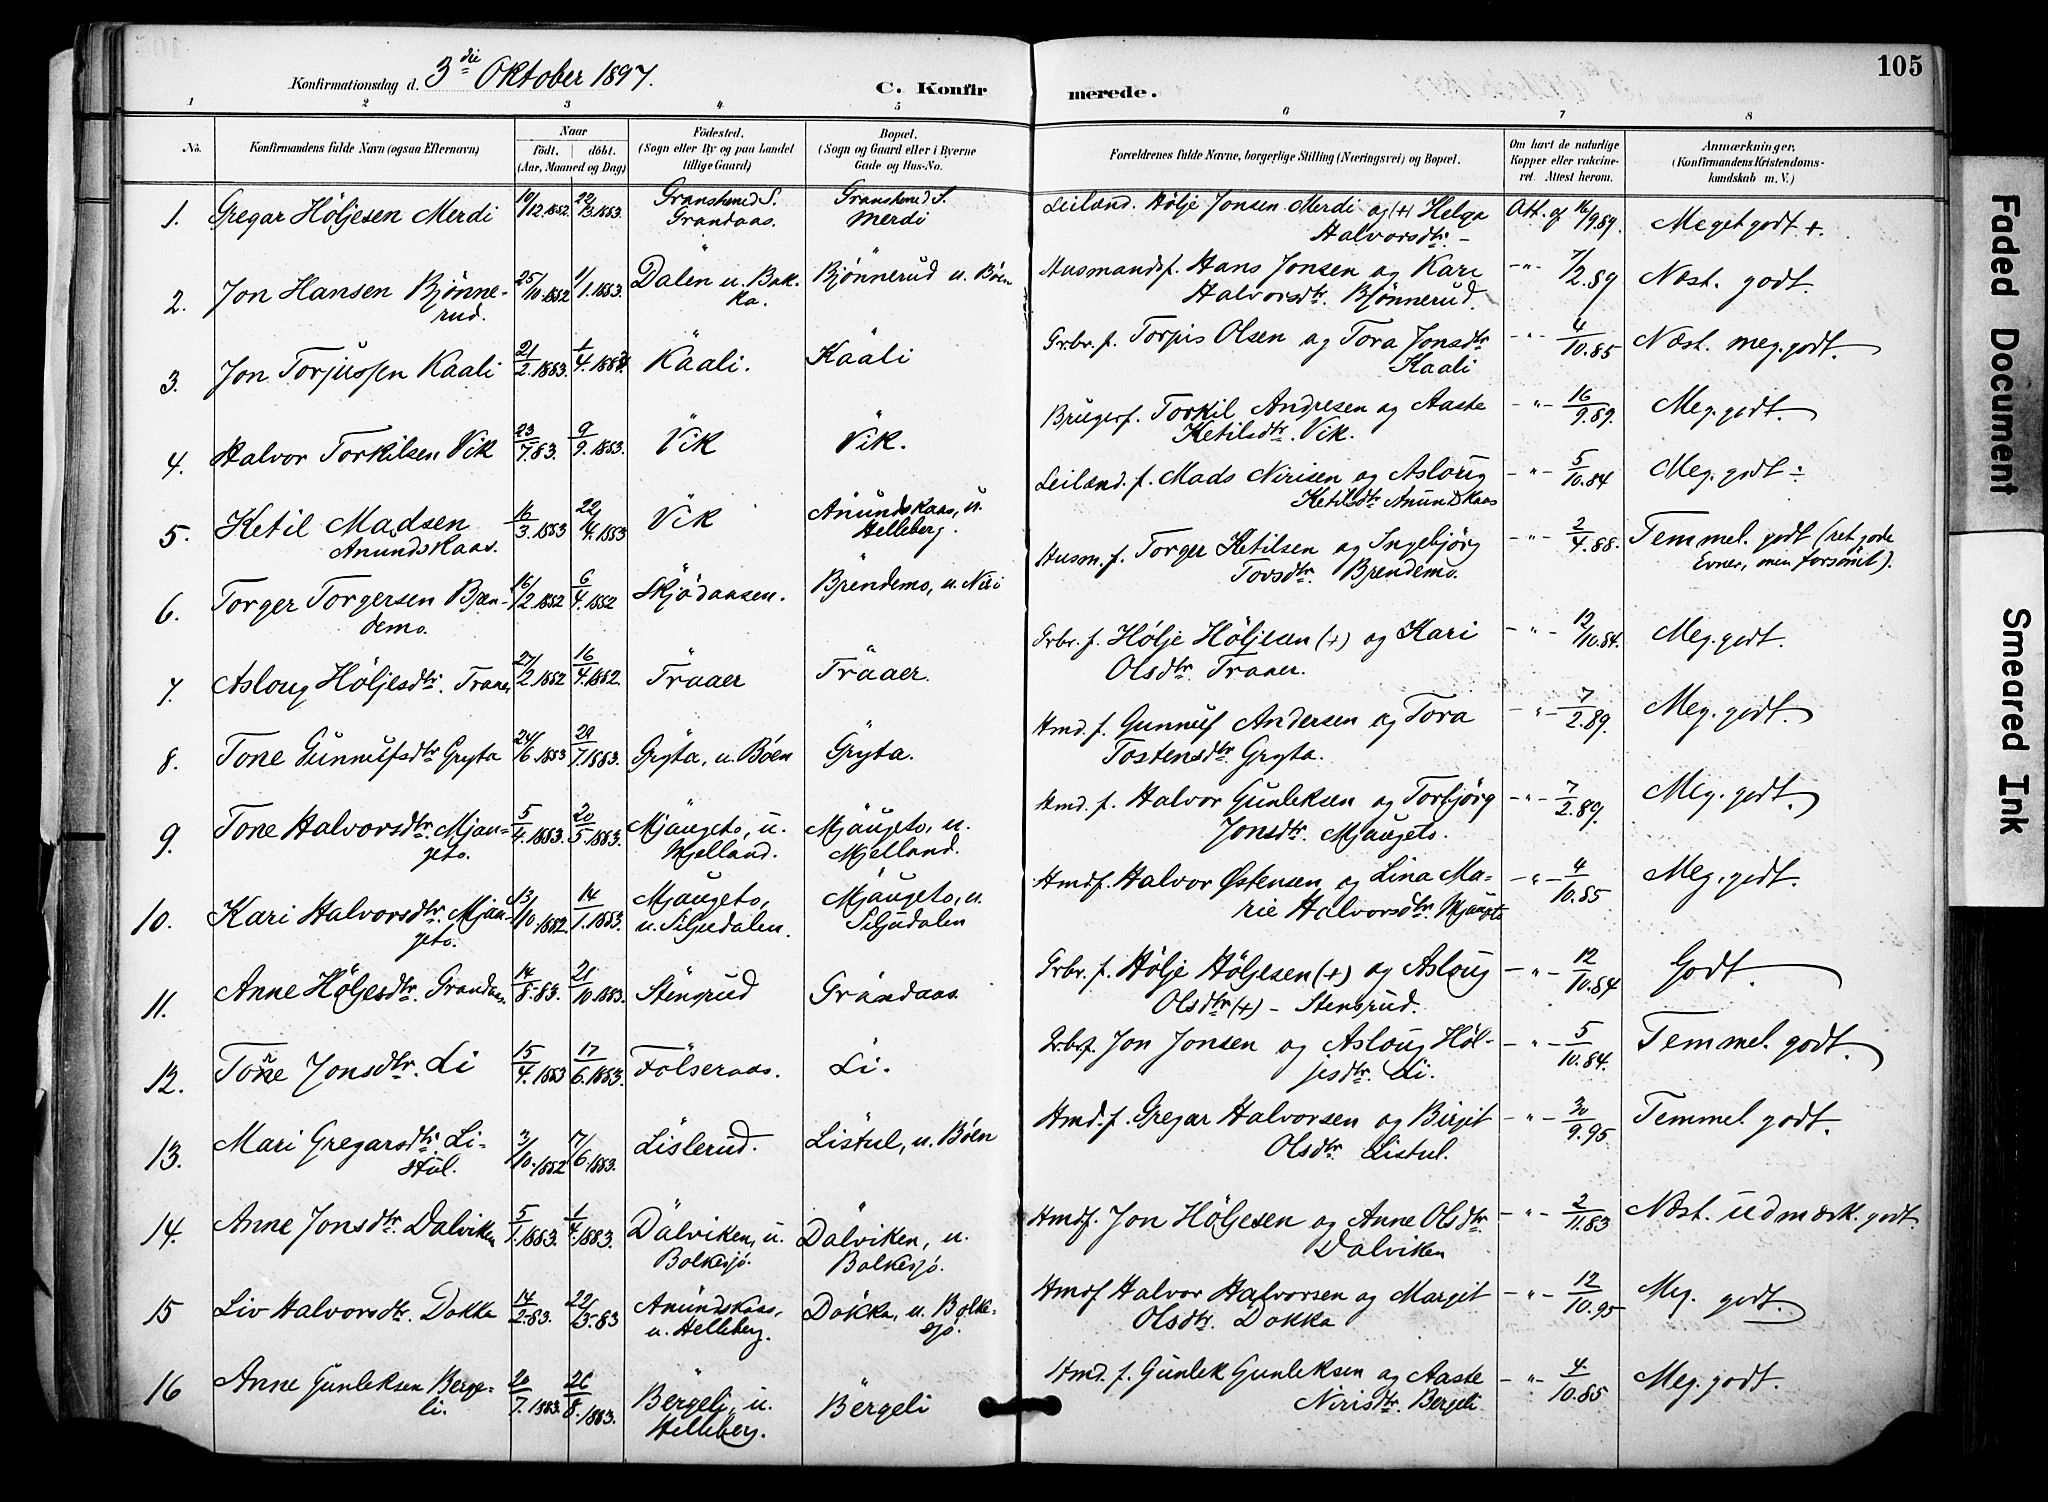 Konfirmationsdag d. 3die Oktober 1897.
C. Konfirmerede.
105
1 2 3 4 5 6 7 8
No.
Konfirmandens fulde Navn (ogsaa Efternavn)
Naar
födt. döbt.
(Aar, Maaned og Dag)
Födested.
(Sogn eller By og paa Landet
tillige Gaard)
Bopæl.
(Sogn og Gaard eller i Byerne
Gade og Hus-No.
Forældrenes fulde Navne, borgerlige Stilling (Næringsvei) og Bopæl.
Om havt de naturlige
Kopper eller vakcine-
ret. Attest herom.
Anmærkninger.
(Konfirmandens Kristendoms-
kundskab m. V.)
1. Gregar Höljesen Merdi 19/12.1882. 22/3.1883. Gransherred S. Grandaas. Gransherred S. Merdi Leilænd. Hölje Jonsen Merdi og (+) Helga Halvorsdtr. – Att. af 16/9.89. Meget godt +.
2. Jon Hansen Bjönne-
rud. 25/10.1882 1/1.1883. Dalen u. Bak-
ka. Bjønnerud u. Bøen Husmandsf. Hans Jonsen og Kari Halvorsdtr. Bjönnerud. -"- 7/2.89 Næst. godt.
3. Jon Torjussen Kaali 21/2.1883. 1/4.1883. Kaali. Kaali Grbr. f. Torjus Olsen og Tora Jonsdtr Kaali -"- 4/10.85 Næst. meg. godt.
4. Halvor Torkilsen Vik 23/7.83. 9/9.1883. Vik Vik. Brugerf. Torkil Andresen og Aaste Ketilsdtr. Vik. -"- 16/9.89. Meg. godt.
5. Ketil Madsen
Anundskaas. 16/3.1883 22/4.1883 Vik Anundskaas, u. Helleberg. Leilænd. f. Mads Nirisen og Asloug Ketilsdtr Anundskaas -"- 5/10.84 Meg. godt ÷
6. Torger Torgersen Bren-
demo. 16/2.1882 6/4.1882 Skjödaasen. Brendemo, u. Niri Husm. f. Torger Ketilsen og Ingebjörg Tovsdtr. Brendemo. -"- 2/4.88. Temmel. godt (ret gode Evner, men forsömt).
7. Asloug Höljesdtr. Traaer 27/2.1882 16/4.1882. Traaer Traaer. Grbr. f. Hölje Höljesen (+) og Kari Olsdtr. Traaer. -"- 12/10.84. Meg. godt.
8. Tone Gunnufsdtr Gryta 24/6.1883 29/7.1883. Gryta, u. Böen Gryta. Hmd. f. Gunnuf Andersen og Tora Tostensdtr. Gryta. -"- 7/2.89. Meg. godt.
9. Tone Halvorsdtr. Mjau-
geto. 5/4.1883. 20/5.1883. Mjaugeto, u. Mjelland. Mjaugeto, u. Mjelland. Hmd. f. Halvor Gunleksen og Torbjörg Jonsdtr. Mjaugeto. -"- 7/2.89. Meg. godt.
10. Kari Halvorsdtr. Mjau-
geto. 13/10.1882. 14/1.1883. Mjaugeto, u. Siljudalen. Mjaugeto, u. Siljudalen Hmdf. Halvor Østensen og Lina Ma-
rie Halvorsdtr. Mjaugeto -"- 4/10.85 Meg. godt.
11. Anne Höljesdtr. Grandaas 14/8.83. 21/10.1883. Stensrud Grandaas. Grbr. f. Hölje Höljesen (+) og Asloug Olsdtr (+) – Stensrud. -"- 12/10.84 Godt.
12. Tone Jonsdtr. Li 15/4.1883 17/6.1883. Fölseraas. Li. Grbr. f. Jon Jonsen og Asloug Höl-
jesdtr. Li. -"- 5/10.84. Temmel. godt.
13. Mari Gregarsdtr. Li-
stul. 3/10.1882 7/6.1883. Lislerud. Listul, u. Böen Hmd. f. Gregar Halvorsen og Birgit Olsdtr Listul. -"- 30/9.95. Temmel. godt.
14. Anne Jonsdtr. Dalviken 5/1.1883. 1/4.1883. Dalviken, u. Bolkesjö. Dalviken, u. Bolkesjö. Hmdf. Jon Höljesen og Anne Olsdtr Dalviken -"- 2/11.83 Næst. udmærk. godt.
15 Liv Halvorsdtr. Dokka 14/2.83. 22/3.83 Anundskaas, u. Helleberg. Dokka, u. Bolke-
sjö. Hmdf Halvor Halvorsen og Margit Olsdtr. Dokka -"- 12/10.95 Meg. godt.
16 Anne Gunleksen Berge-
li. 20/7.1883. 26/8.1883. Bergeli, u. Helleberg. Bergeli Hmd. f. Gunlek Gunleksen og Aaste Nirisdtr. Bergeli -"- 4/10.85 Meg. godt.
Faded Document
Smeared Ink